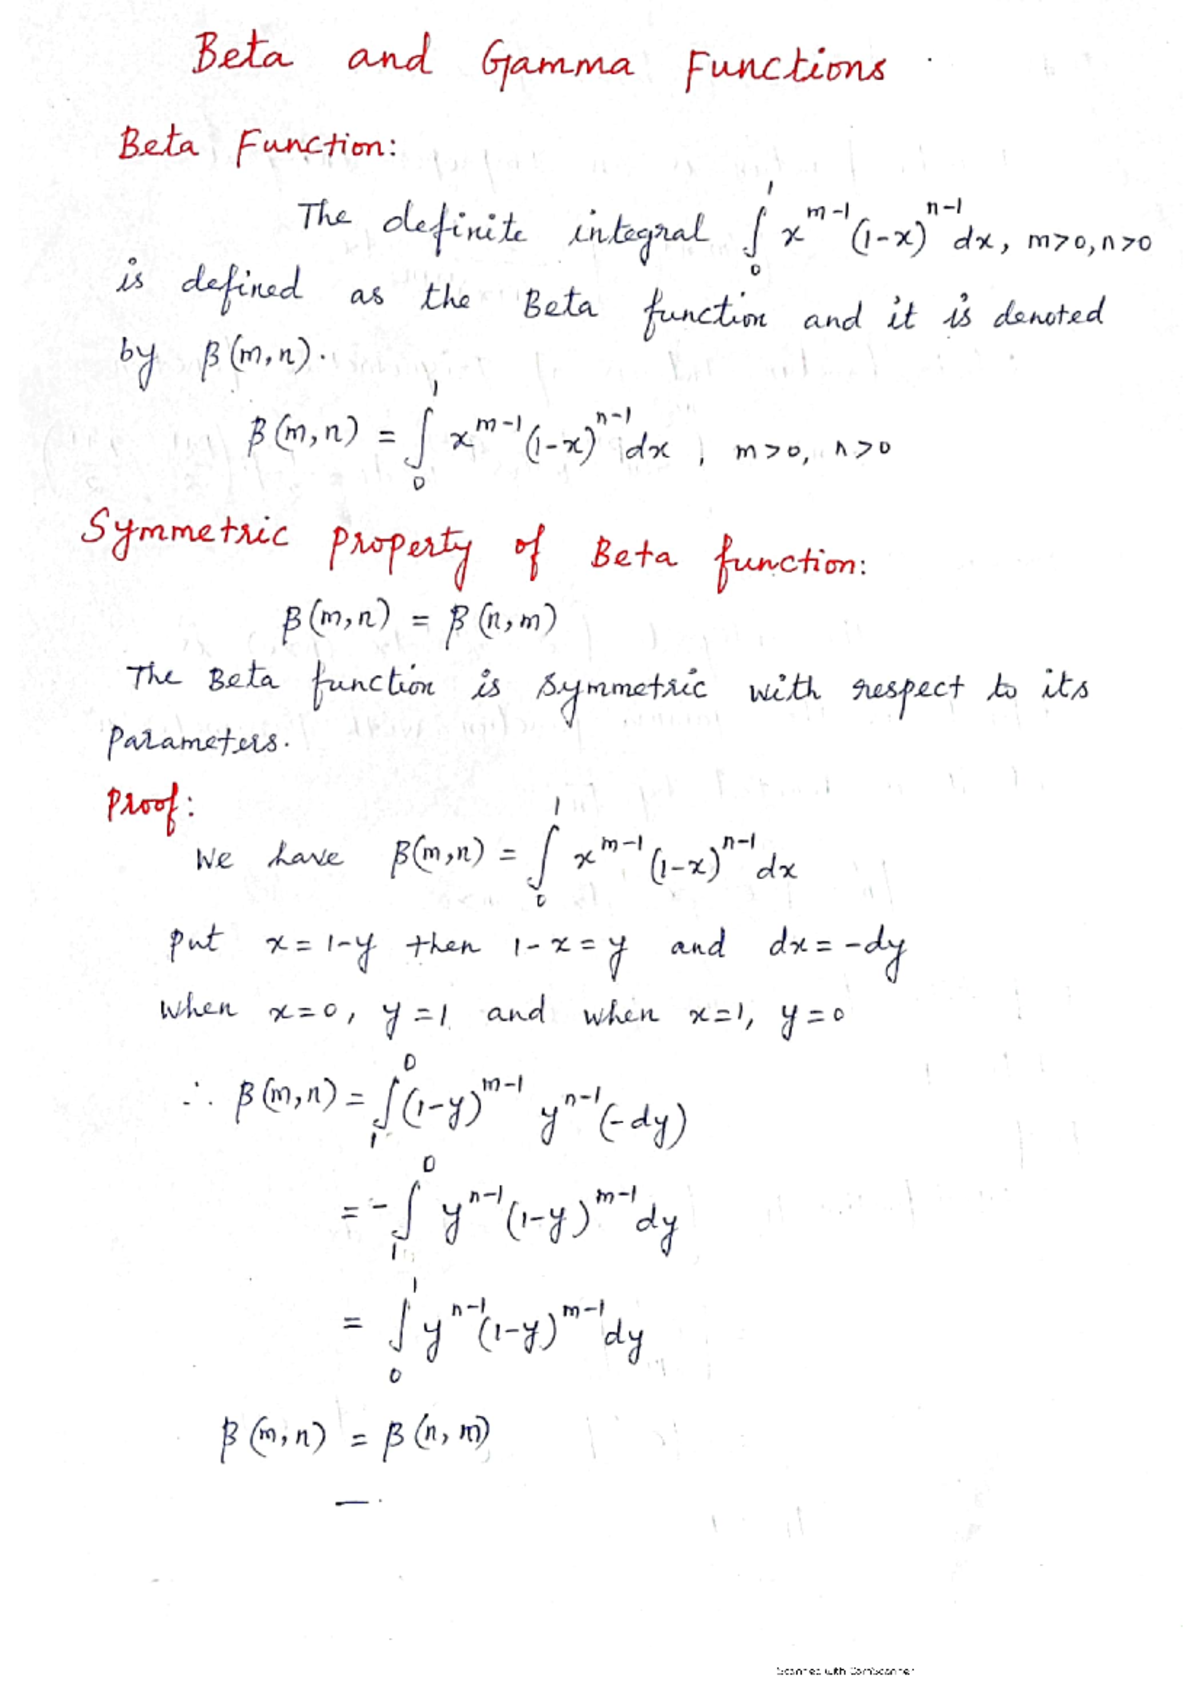 Beta and Gamma Functions
Beta Function:
The definite integral ∫₀¹ x^(m-1) (1-x)^(n-1) dx, m>0, n>0
is defined as the Beta function and it is denoted
by β(m,n).
β(m,n) = ∫₀¹ x^(m-1) (1-x)^(n-1) dx, m>0, n>0
Symmetric property of Beta function:
β(m,n) = β(n,m)
The Beta function is symmetric with respect to its
Parameters.
Proof:
We have β(m,n) = ∫₀¹ x^(m-1) (1-x)^(n-1) dx
Put x = 1-y then 1-x = y and dx = -dy
When x=0, y=1 and when x=1, y=0
∴ β(m,n) = ∫₁⁰ (1-y)^(m-1) y^(n-1) (-dy)
= -∫₁⁰ y^(n-1) (1-y)^(m-1) dy
= ∫₀¹ y^(n-1) (1-y)^(m-1) dy
β(m,n) = β(n,m)
Scanned with CamScanner